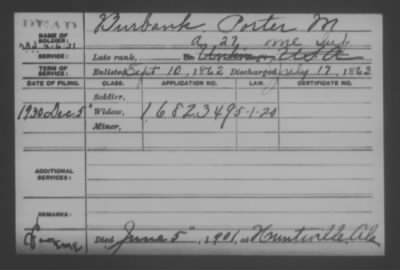 DEAD
NAME OF SOLDIER: Burbank Porter M
A, 27 Me Inf.
SERVICE: Late rank,
TERM OF SERVICE: Enlisted Sept 10, 1862 Discharged July 17, 1863
DATE OF FILING. CLASS. APPLICATION NO. LAW. CERTIFICATE NO.
Soldier,
1930 Dec 5" Widow, 1682349 5-1-20
Minor,
ADDITIONAL SERVICES:
REMARKS:
Died June 5" , 1901, at Huntsville, Ala